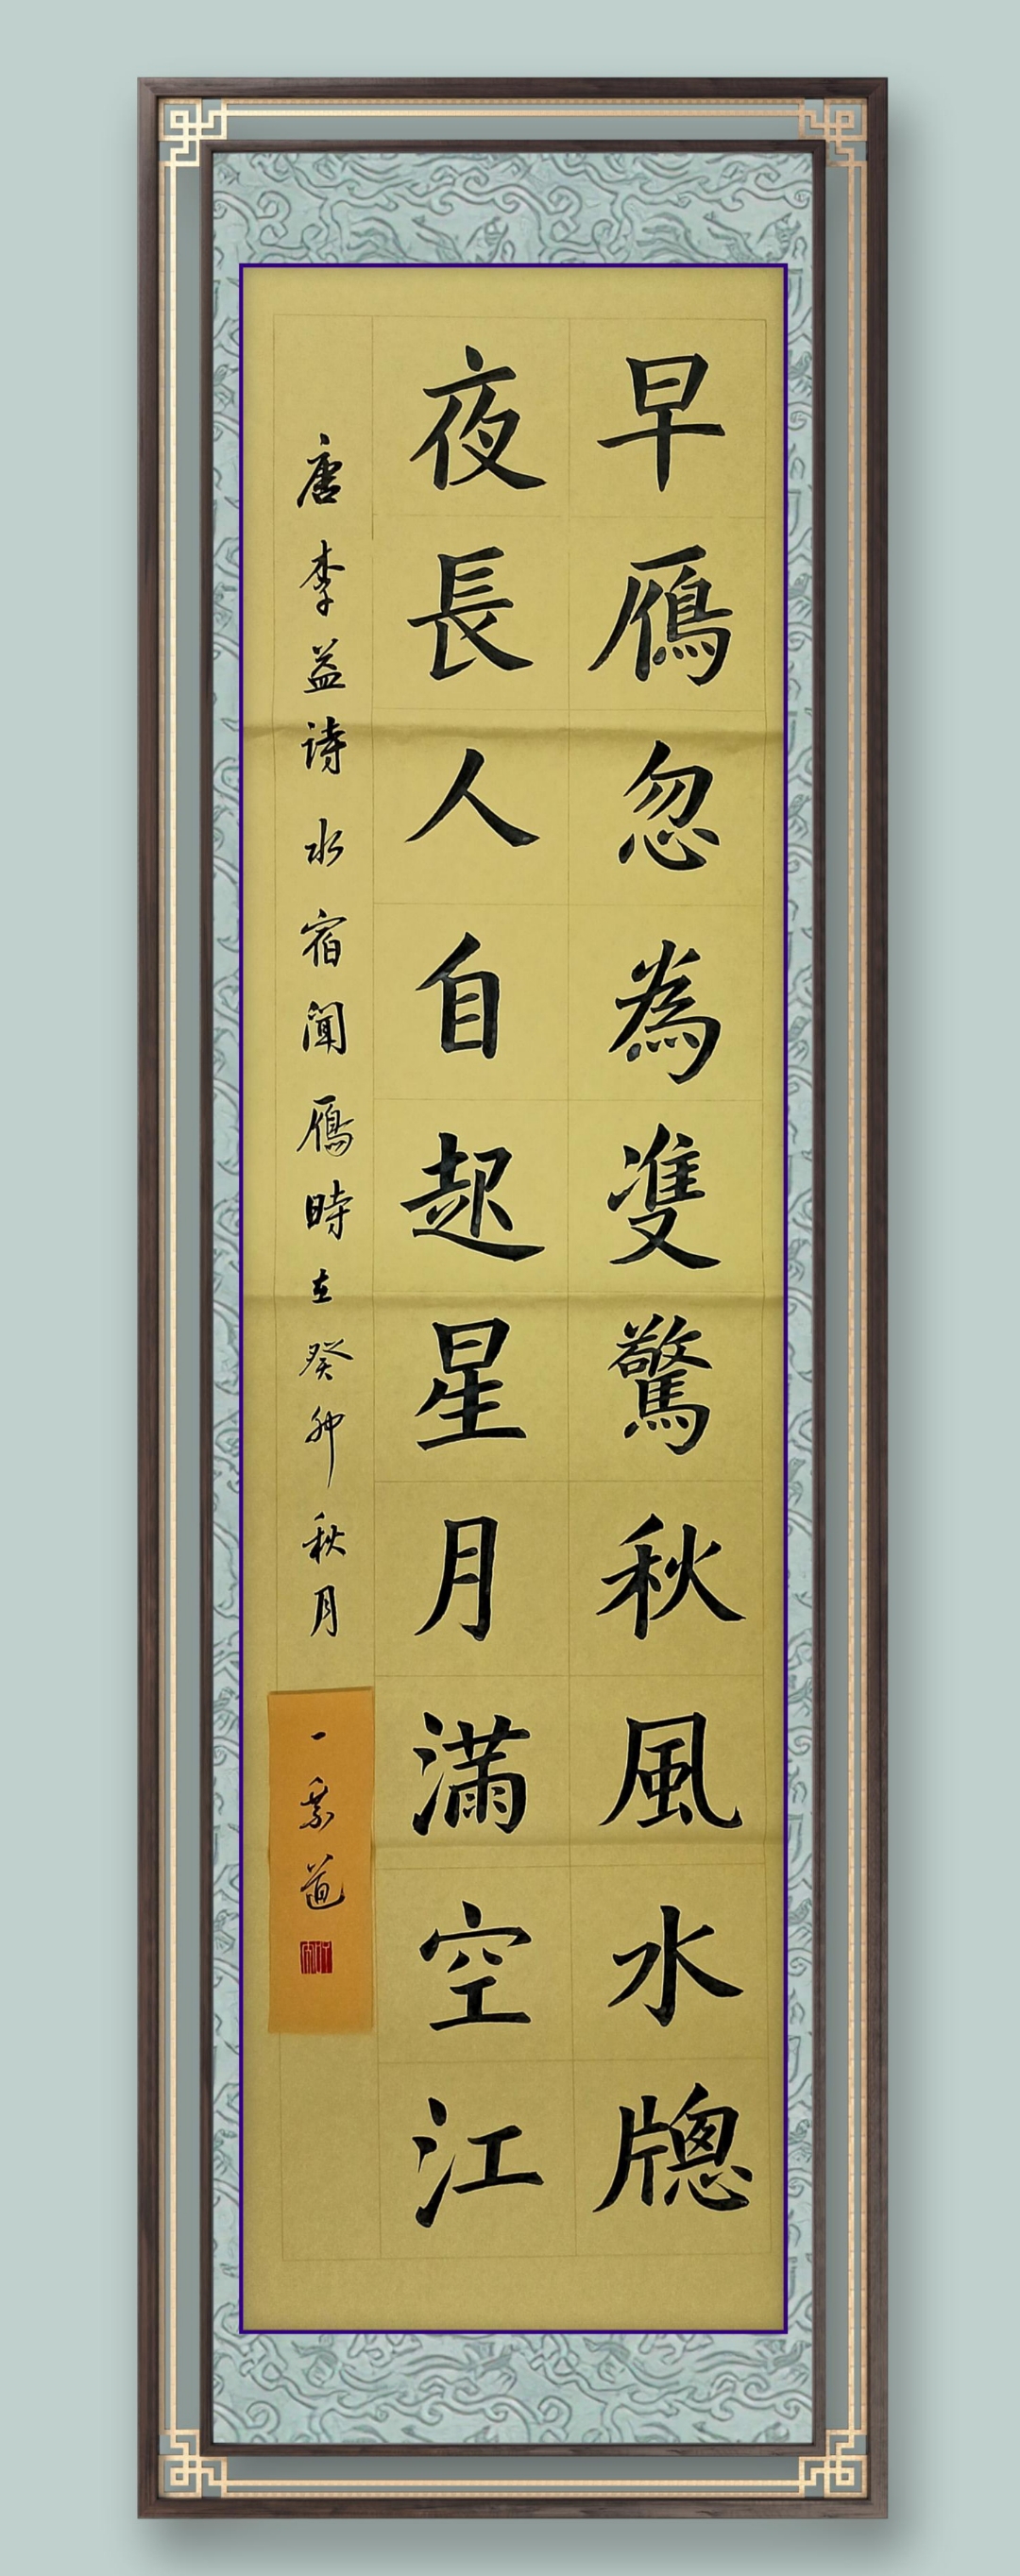 早鴈忽為雙驚秋風水牕
夜長人自起星月滿空江
唐李益诗水宿闻鴈時在癸卯秋月
一乘道